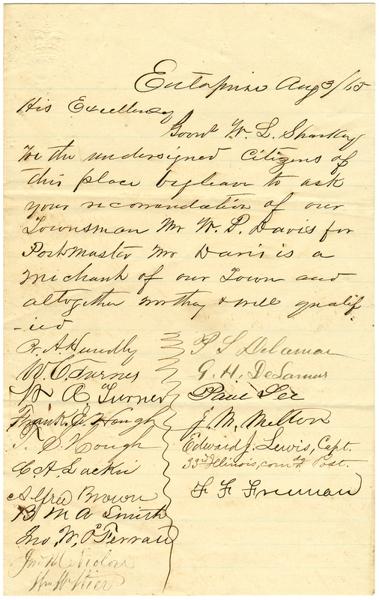 Enterprise Aug 3/65
His Excellency
Govnr W. L. Sharkey
We the undersigned Citizens of
this place beg leave to ask
your recomendation of our
Townsman Mr W. P. Davis for
Postmaster Mr Davis is a
merchant of our Town and
altogether worthy & well qualif
-ied
R. A. Hundly
W. C. Turner
W A Turner
Frank J. Hough
T. S. Hough
C A Lackie
Alfred Brown
B. M. A Smith
Jno. W. O'Ferrall
P S
G. H. DeLamar
Paul Lee
J. M. Melton
Edward J. Lewis, Capt.
33d Illinois, com'd'g Post.
F. F. Freeman